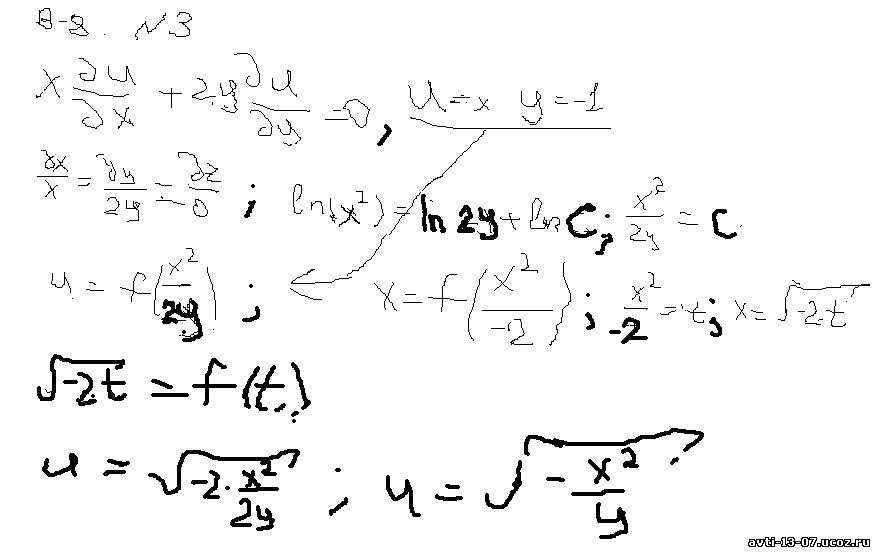 В-8. №3
x ∂u/∂x + 2y ∂u/∂y = 0, u = x y = -1
∂x/x = ∂y/2y = ∂z/0 ; ln(x²) = ln 2y + ln C; x²/2y = C
u = f(x²/2y) ; x = f(x²/-2) ; x²/-2 = t; x = √-2t
√-2t = f(t);
u = √-2·x²/2y ; u = √-x²/y
avti-13-07.ucoz.ru